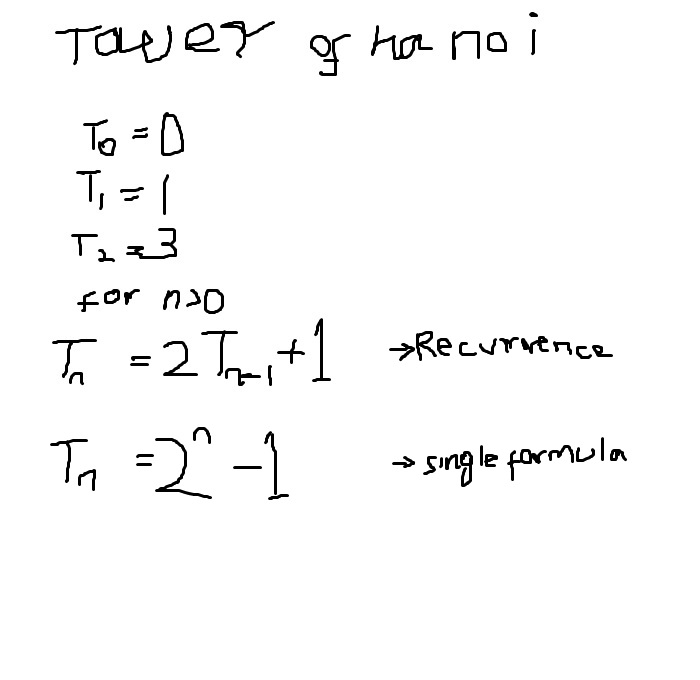 Tower of hanoi
T₀ = 0
T₁ = 1
T₂ = 3
for n>0
Tₙ = 2Tₙ₋₁ + 1 → Recurrence
Tₙ = 2ⁿ - 1 → single formula